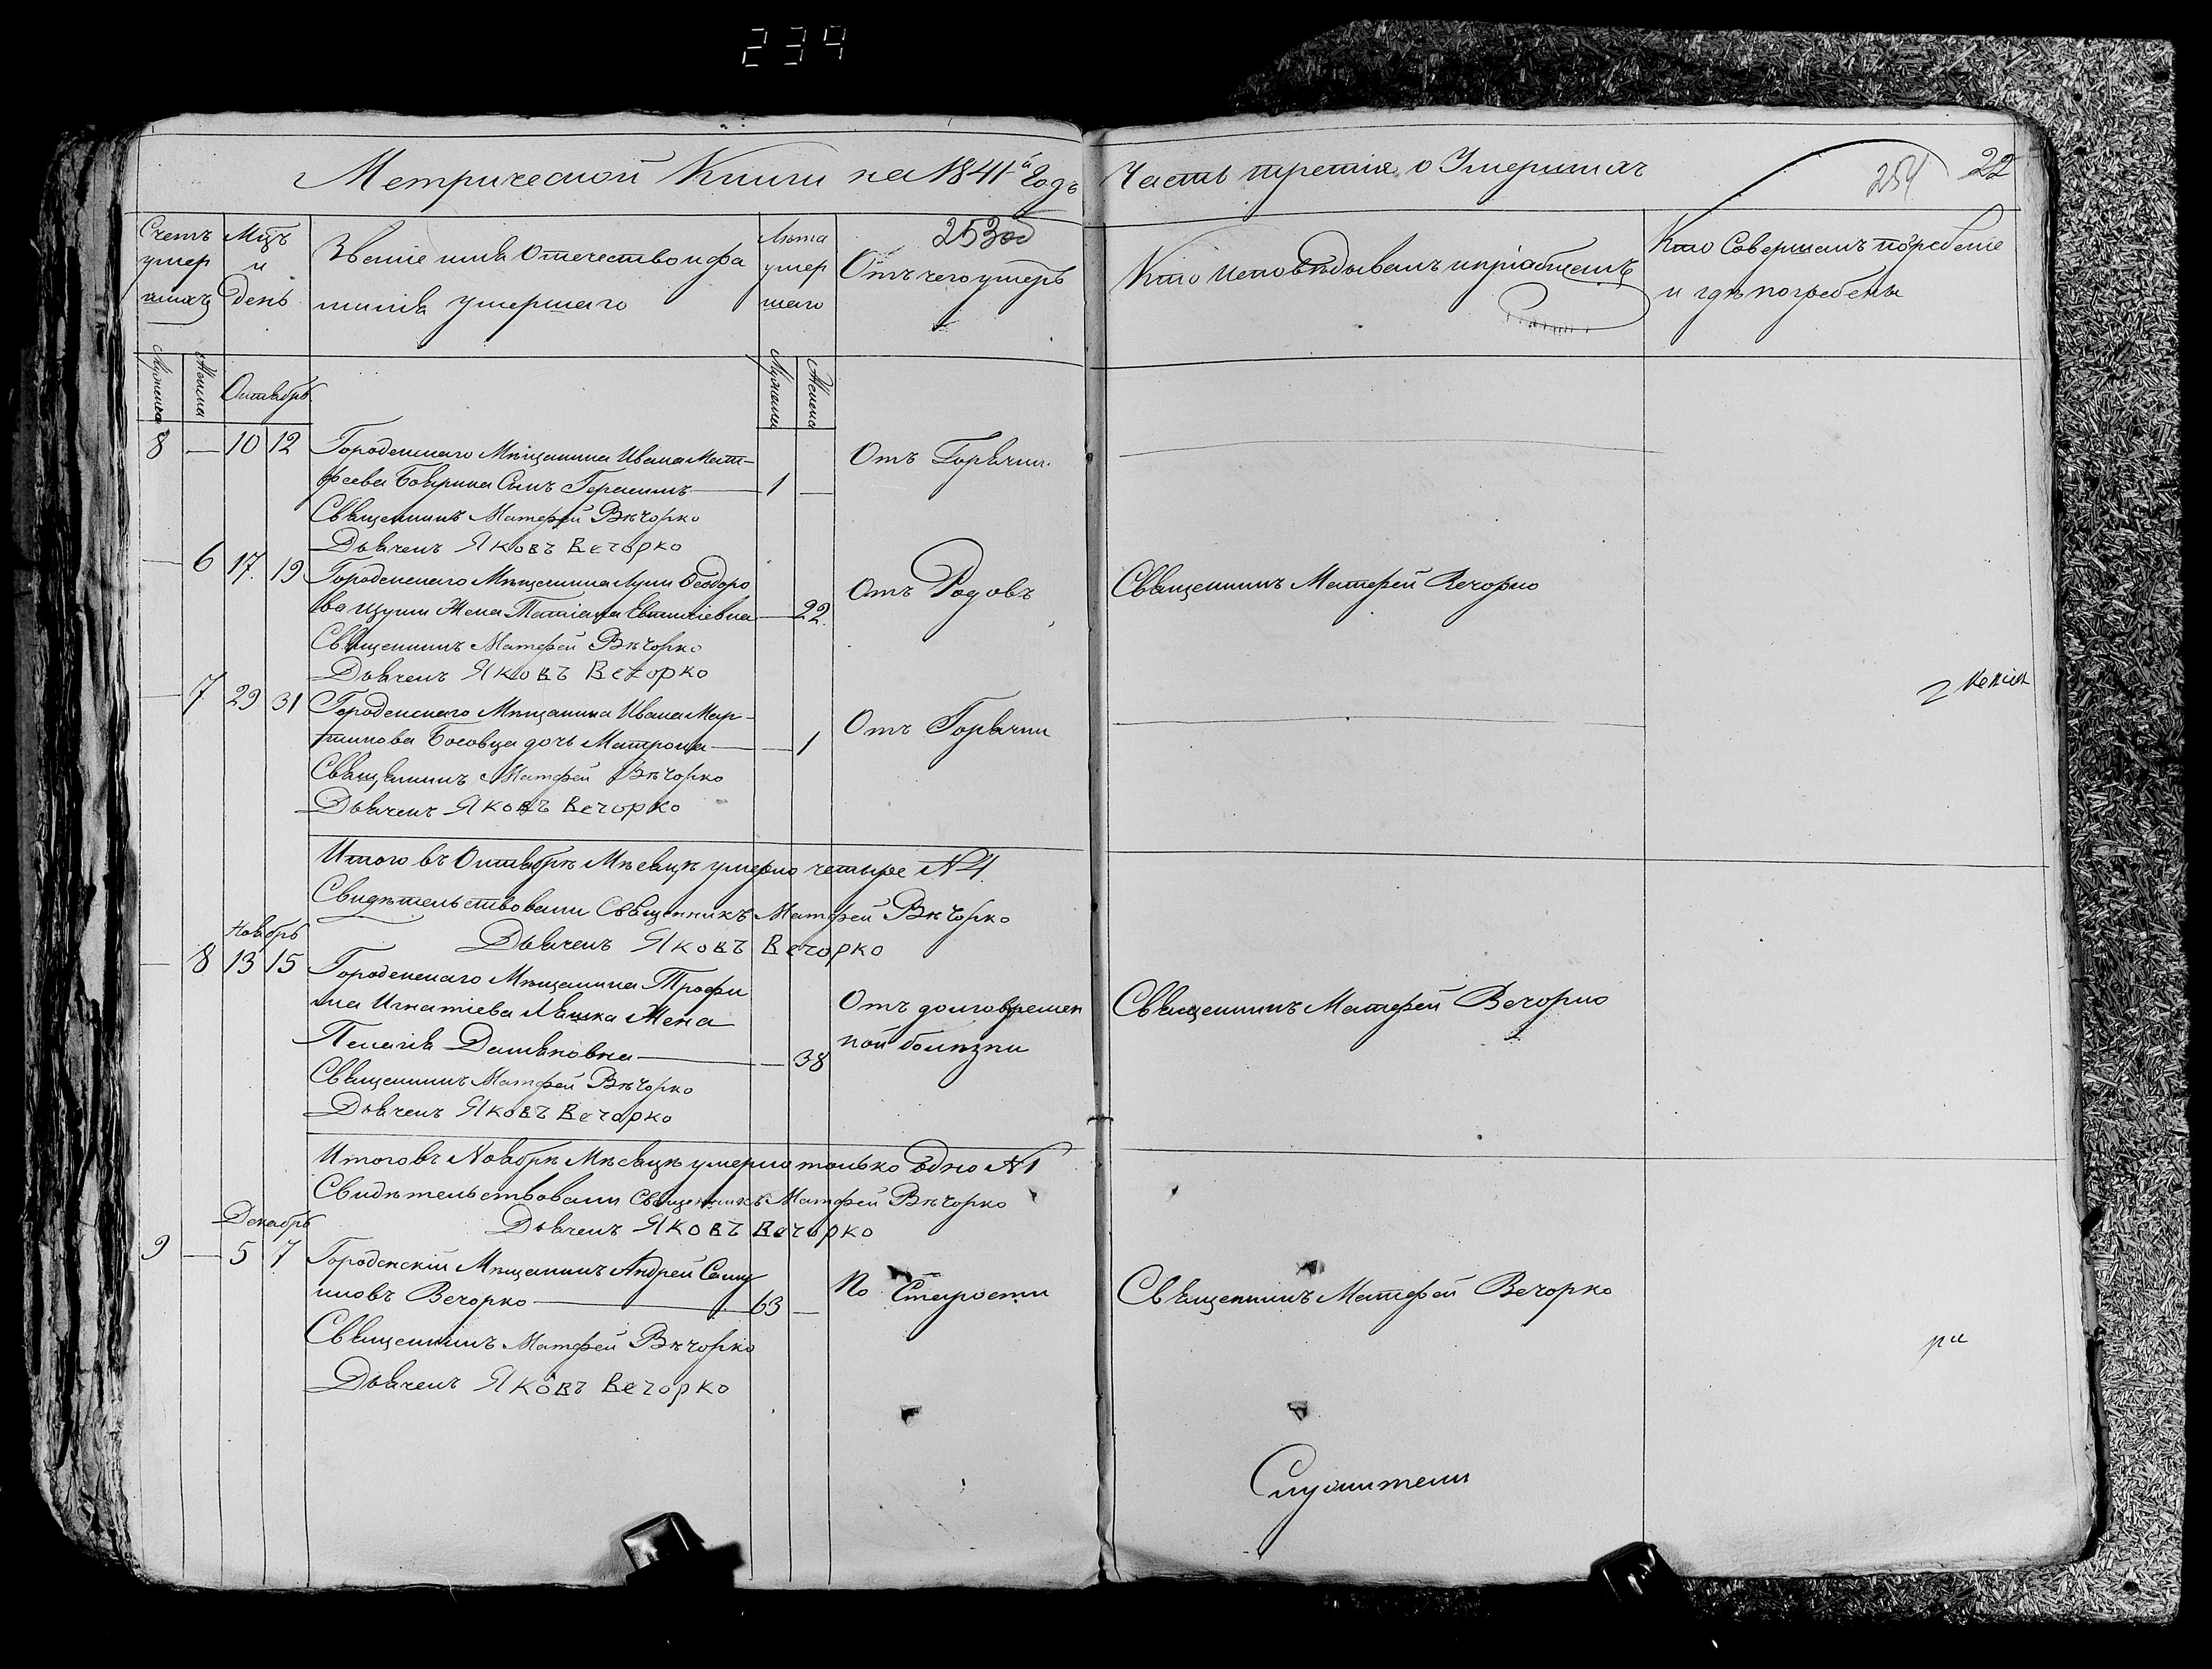 234
Метрической Книги на 1841й Годъ
Часть третія о Умершихъ
254
22
Счетъ умер шихъ
Мцъ и День
Званіе имя Отечество и фа
милія умершаго
Лѣта умер шаго
253об
Отъ чего умеръ
Кто исповѣдывалъ и пріобщалъ
Кто Совершалъ погребеніе
и гдѣ погребены
Мужеска
Женска
Октябрь
8 — 10 12 Городенскаго Мѣщанина Ивана Мат-
феева Сынъ Герасимъ — 1 —
Отъ Горячки
Священникъ Матфей Вѣчорко
Дьячекъ Яковъ Вечорко
— 6 17 19 Городенскаго Мѣщанина Луки Ѳеодоро
ва Жена Татіана — 22
Отъ Родовъ
Священникъ Матфей Вечорко
Священникъ Матфей Вѣчорко
Дьячекъ Яковъ Вечорко
— 7 29 31 Городенскаго Мѣщанина Ивана Мар-
тинова Босовца дочь Матрона — 1
Отъ Горячки
Священникъ Матфей Вѣчорко
Дьячекъ Яковъ Вечорко
Итого въ Октябрѣ Мѣсяцѣ умерло четыре №4.
Свидѣтельствовали Священникъ Матфей Вѣчорко
Дьячекъ Яковъ Вечорко
Ноябрь
— 8 13 15 Городенскаго Мѣщанина Трофи
ма Игнатіева Ляшка Жена
Пелагія Демяновна — 38
Отъ долговремен
ной болѣзни
Священникъ Матфей Вечорко
Священникъ Матфей Вѣчорко
Дьячекъ Яковъ Вечорко
Итого въ Ноябрѣ Мѣсяцѣ умерло только Одно №1
Свидѣтельствовали Священникъ Матфей Вѣчорко
Дьячекъ Яковъ Вечорко
Декабрь
9 — 5 7 Городенскій Мѣщанинъ Андрей Саму
иловъ Вечорко — 63 —
По Старости
Священникъ Матфей Вечорко
Священникъ Матфей Вѣчорко
Дьячекъ Яковъ Вечорко
Служители